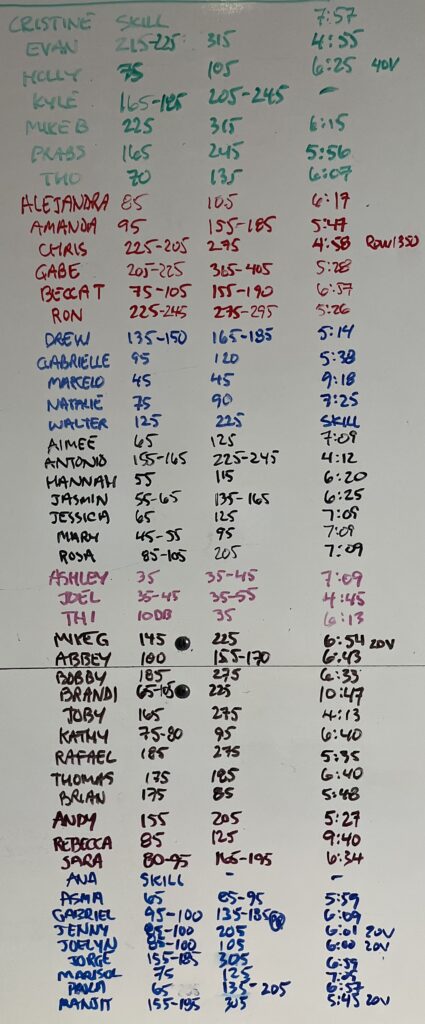 CRISTINE SKILL 7:57
EVAN 215-225 315 4:55
HOLLY 75 105 6:25 40V
KYLE 165-185 205-245 -
MIKE B 225 315 6:15
PRABS 165 245 5:56
THO 70 135 6:07
ALEJANDRA 85 105 6:17
AMANDA 95 155-185 5:47
CHRIS 225-205 275 4:58 ROW 1350
GABE 205-225 365-405 5:28
BECCA T 75-105 155-190 6:57
RON 225-245 275-295 5:26
DREW 135-150 165-185 5:14
GABRIELLE 95 120 5:38
MARCELO 45 45 9:18
NATALIE 75 90 7:25
WALTER 125 225 SKILL
AIMEE 65 125 7:09
ANTONIO 155-165 225-245 4:12
HANNAH 55 115 6:20
JASMIN 55-65 135-165 6:25
JESSICA 65 125 7:09
MARY 45-55 95 7:09
ROSA 85-105 205 7:09
ASHLEY 35 35-45 7:09
JOEL 35-45 35-55 4:45
THI 10DB 35 6:13
MIKE G 145 225 6:54 20V
ABBEY 100 155-170 6:43
BOBBY 185 275 6:33
BRANDI 65-105 225 10:47
JOBY 165 275 4:13
KATHY 75-80 95 6:40
RAFAEL 185 275 5:35
THOMAS 175 185 6:40
BRIAN 175 85 5:48
ANDY 155 205 5:27
REBECCA 85 125 9:40
SARA 80-95 165-195 6:34
ANA SKILL - -
ASMA 65 85-95 5:59
GABRIEL 95-100 135-185 6:09
JENNY 85-100 205 6:01 20V
JOELYN 85-100 105 6:00 20V
JORGE 155-185 305 6:39
MARISOL 75 125 7:05
65 135-205 6:57
MANJIT 155-185 305 5:45 20V